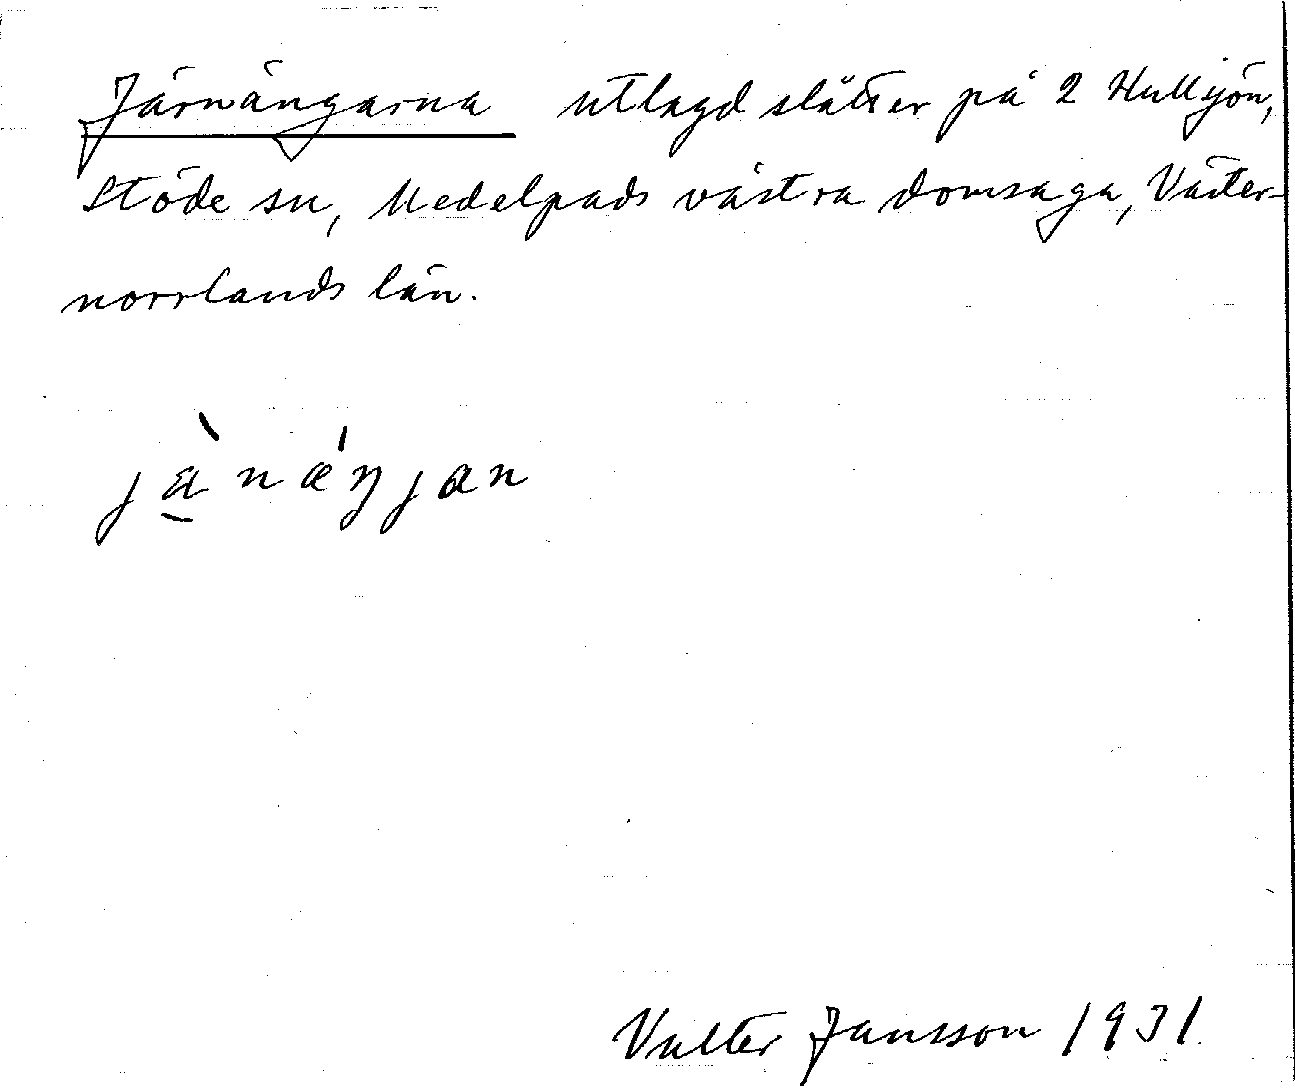 Järnängarna utlagd slåtter på 2 Hullsjön,
Stöde sn, Medelpads västra domsaga, Väster-
norrlands län.
jæ̀nǽŋjan
Valter Jansson 1931